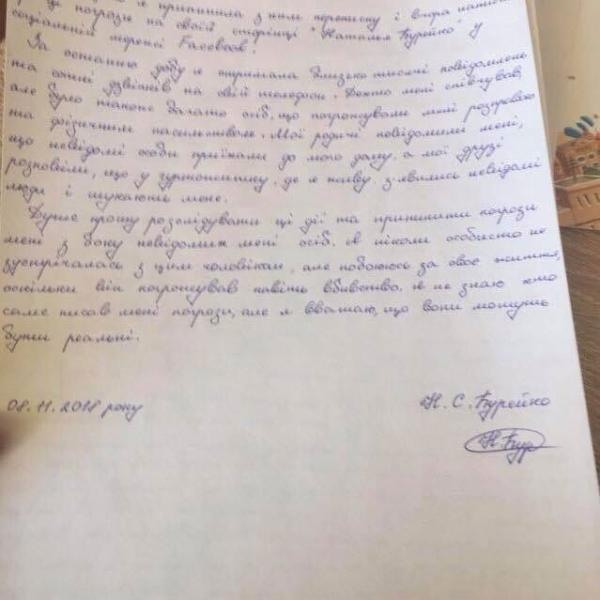 погрози я припинила з ним переписку і вчора
ці погрози на своїй сторінці "Наталья Бурейко" у
соціальній мережі Facebook.
За останню добу я отримала близько тисячі повідомлень
та сотні дзвінків на свій телефон. Дехто мені співчував,
але було також багато осіб, що погрожували мені розправою
та фізичним насильством. Мої родичі повідомили мені,
що невідомі особи приїхали до мого дому, а мої друзі
розповіли, що у гуртожитку, де я живу, з'явились невідомі
люди і шукають мене.
Дуже прошу розслідувати ці дії та припинити погрози
мені з боку невідомих мені осіб. Я ніколи особисто не
зустрічалась з цим чоловіком, але побоююсь за своє життя,
оскільки він погрожував навіть вбивством. Я не знаю хто
саме писав мені погрози, але я вважаю, що вони можуть
бути реальні.
08.11.2018 року
Н. С. Бурейко
Н.Бур